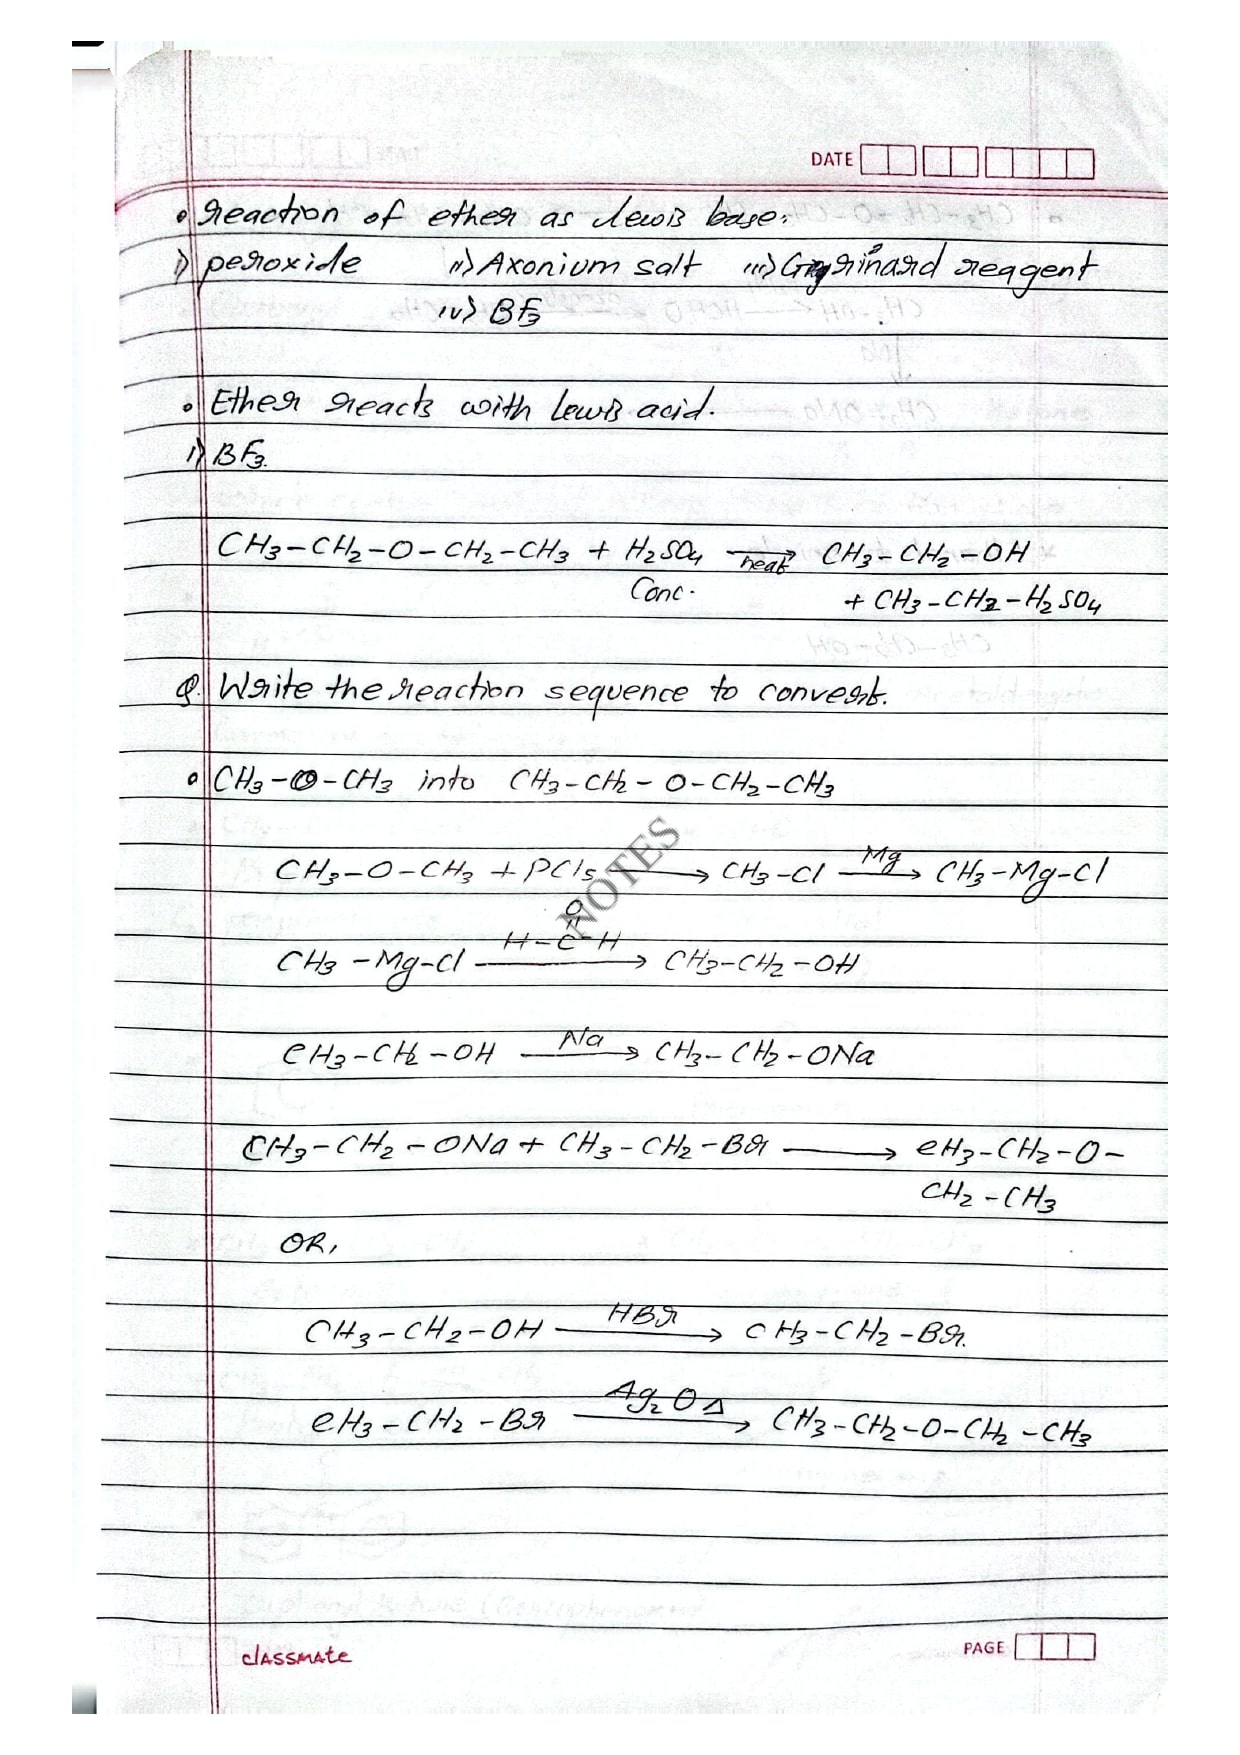 DATE
• Reaction of ether as lewis base:
i) peroxide ii) Axonium salt iii) Grignard reagent
iv) BF3
• Ether reacts with lewis acid.
i) BF3.
CH3-CH2-O-CH2-CH3 + H2SO4 →heat CH3-CH2-OH
Conc. + CH3-CH2-H2SO4
Q. Write the reaction sequence to convert.
• CH3-O-CH3 into CH3-CH2-O-CH2-CH3
CH3-O-CH3 + PCl5 → CH3-Cl Mg→ CH3-Mg-Cl
NOTES
O
H-C-H
CH3-Mg-Cl → CH3-CH2-OH
CH3-CH2-OH Na→ CH3-CH2-ONa
CH3-CH2-ONa + CH3-CH2-Br → CH3-CH2-O-
CH2-CH3
OR,
CH3-CH2-OH HBr→ CH3-CH2-Br.
CH3-CH2-Br Ag2O Δ→ CH3-CH2-O-CH2-CH3
classmate PAGE